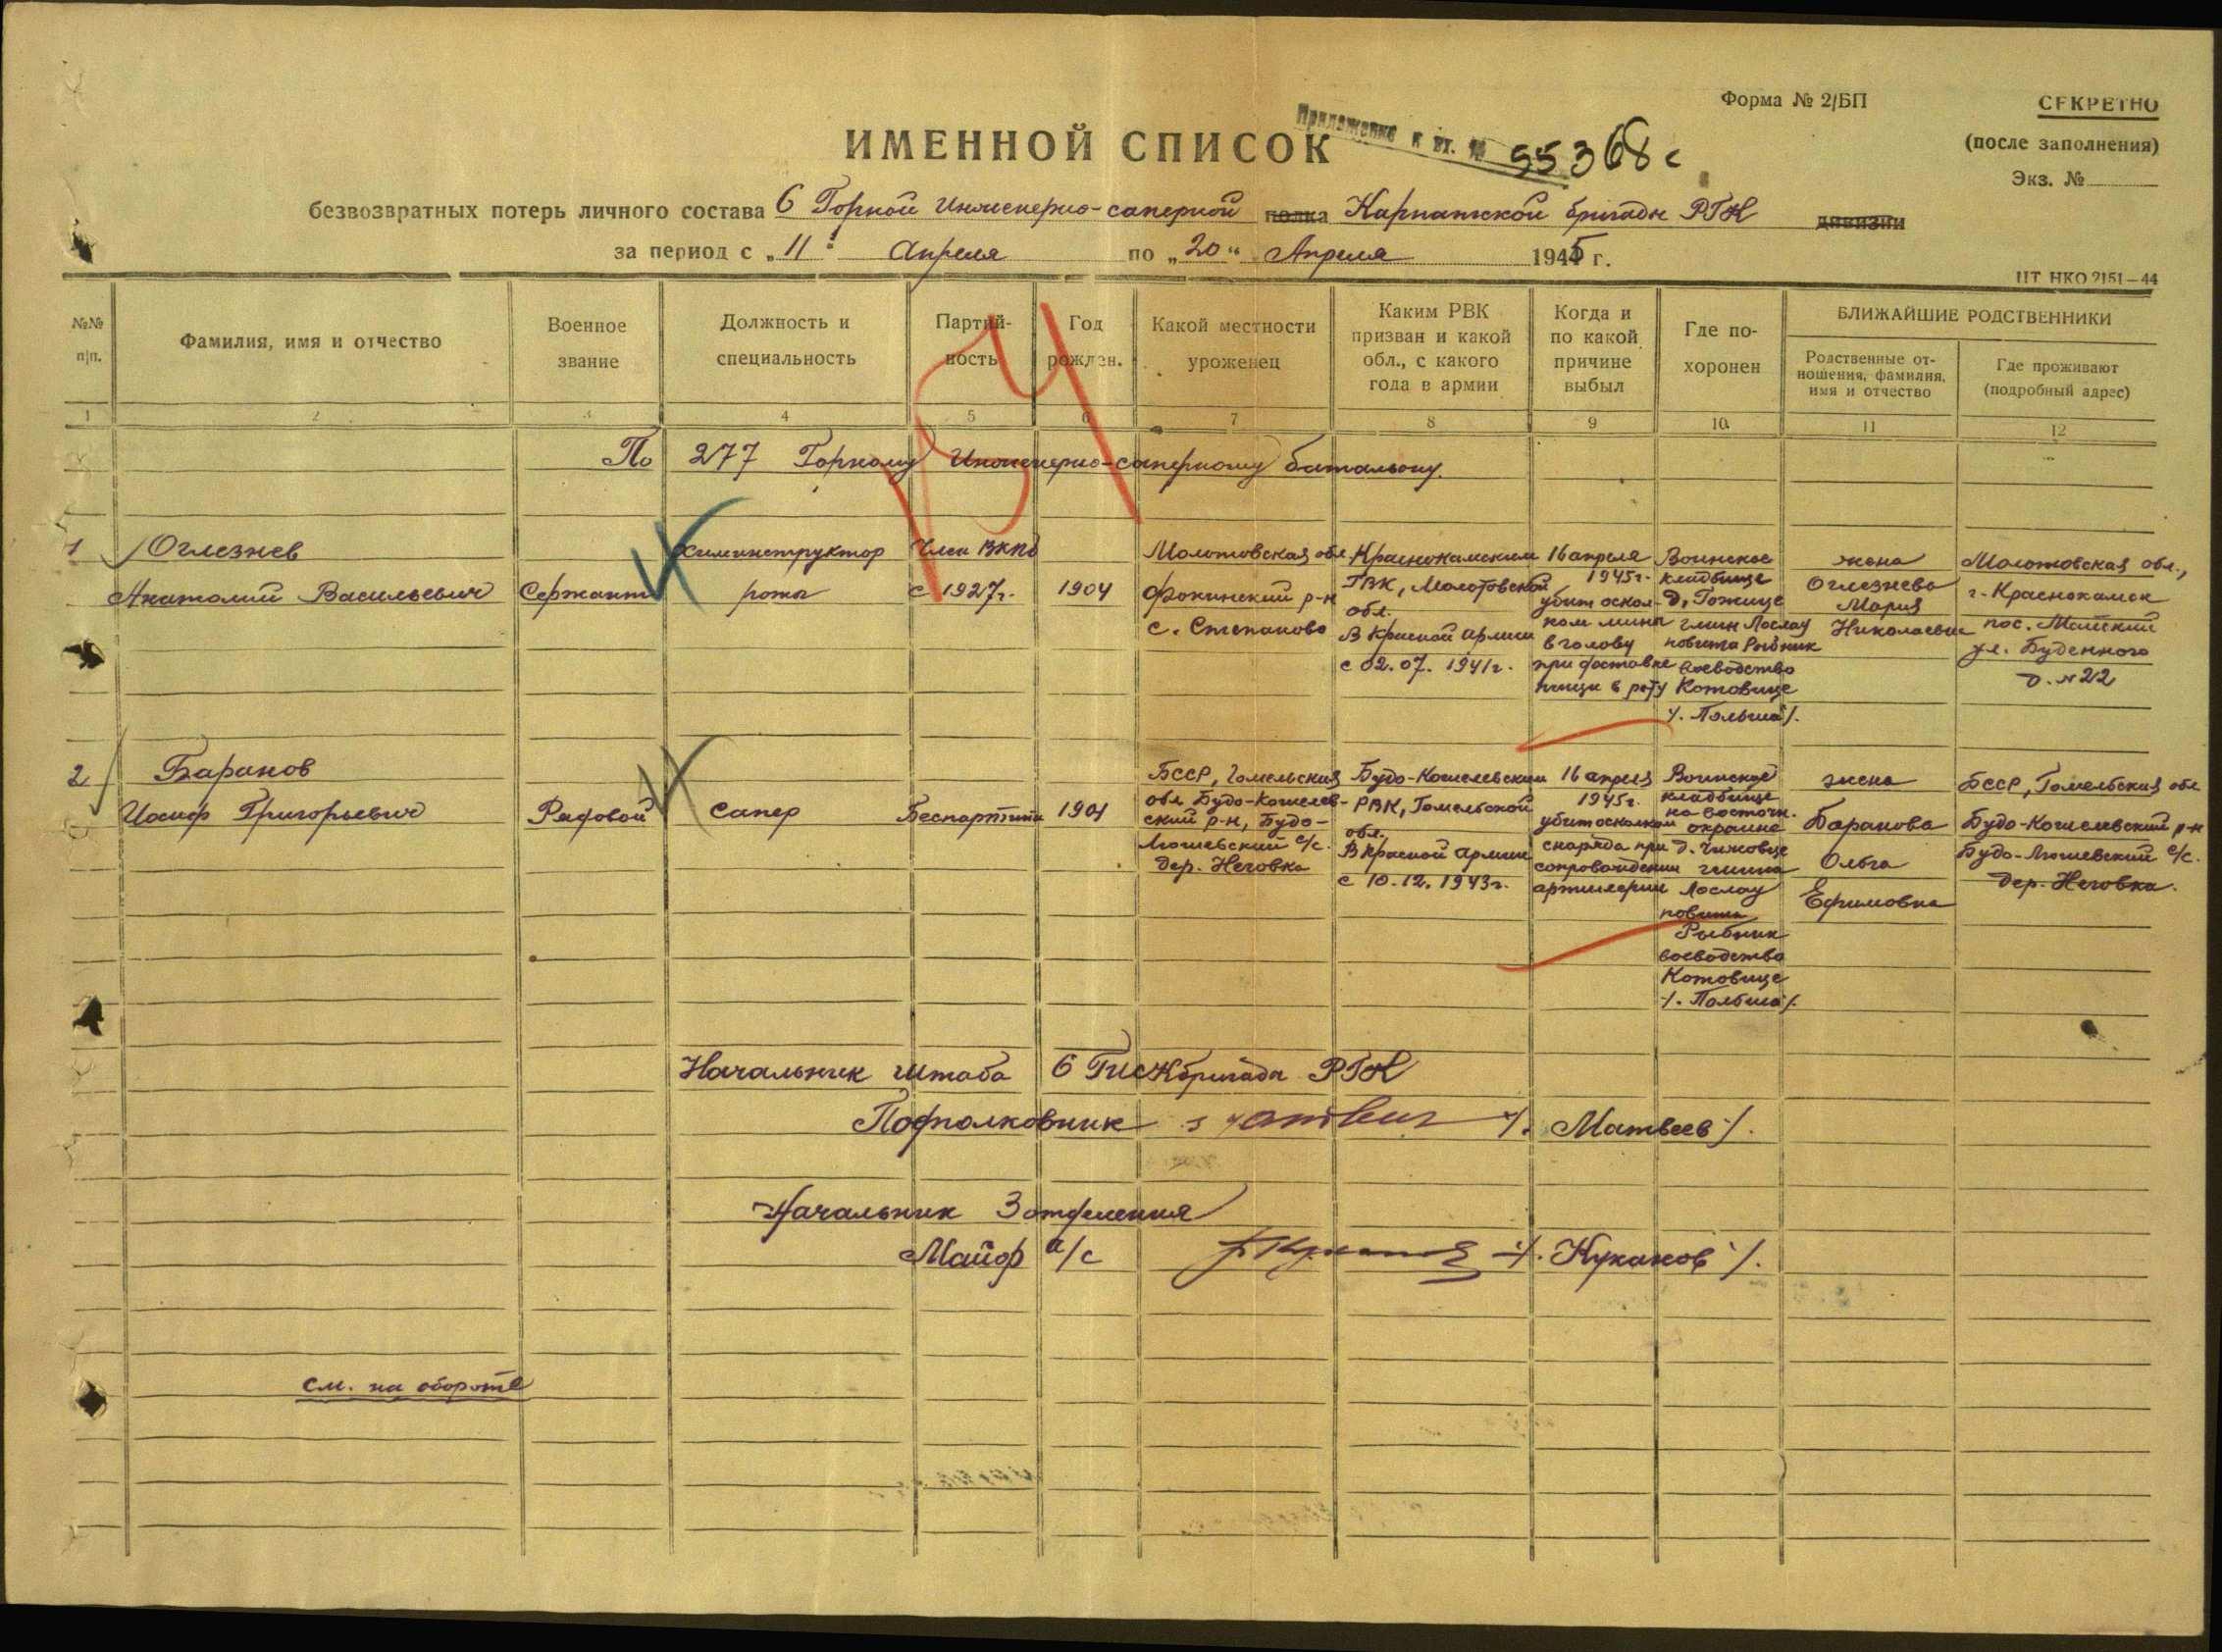 Форма № 2/БП
СЕКРЕТНО
(после заполнения)
Экз. №
Приложение к вх. № 55368с
ИМЕННОЙ СПИСОК
безвозвратных потерь личного состава 6 Горной Инженерно-саперной полка Карпатской бригады РГК дивизии
за период с „11" Апреля по „20" Апреля 1945 г.
ЦТ НКО 2151—44
№№ п|п.
Фамилия, имя и отчество
Военное звание
Должность и специальность
Партий-
ность
Год рожден.
Какой местности уроженец
Каким РВК
призван и какой
обл., с какого
года в армии
Когда и
по какой
причине
выбыл
Где по-
хоронен
БЛИЖАЙШИЕ РОДСТВЕННИКИ
Родственные от-
ношения, фамилия,
имя и отчество
Где проживают
(подробный адрес)
1 2 3 4 5 6 7 8 9 10 11 12
По 277 Горному Инженерно-саперному батальону.
1
Оглезнев
Анатолий Васильевич
Сержант
Химинструктор
роты
Член ВКПб
с 1927г.
1904
Молотовская обл
Фокинский р-н
с. Степаново
Краснокамским
ГВК, Молотовской
обл.
В Красной армии
с 02.07.1941г.
16 апреля
1945г.
убит оскол-
ком мины
в голову
при доставке
пищи в роту
Воинское
кладбище
д. Гожице
гмин Лослау
повита Рыбник
воеводство
Котовице
/. Польша/.
жена
Оглезнева
Мария
Николаевна
Молотовская обл.,
г. Краснокамск
пос. Майский
ул. Буденного
д. № 22
2
Баранов
Иосиф Григорьевич
Рядовой
Сапер
Беспартийн
1901
БССР, Гомельская
обл Будо-Кошелев-
ский р-н, Будо-
Люшевский с/с.
дер. Неговка
Будо-Кошелевским
РВК, Гомельской
обл.
В Красной армии
с 10.12.1943г.
16 апреля
1945г.
убит осколком
снаряда при
сопровождении
артиллерии
Воинское
кладбище
на восточн.
окраине
д. Чижовце
гмина
Лослау
повита
Рыбник
воеводство
Котовице
/. Польша/.
жена
Баранова
Ольга
Ефимовна
БССР, Гомельская обл
Будо-Кошелевский р-н
Будо-Люшевский с/с.
дер. Неговка.
Начальник штаба 6 ГИСКбригады РГК
Подполковник /. Матвеев/.
Начальник 3 отделения
Майор а/с /. Куканов/.
см. на обороте